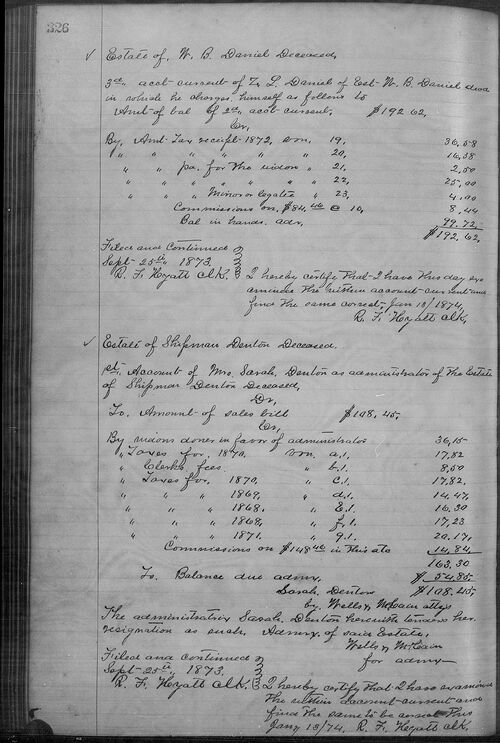 326
✓ Estate of, W. B. Daniel Deceased,
3rd, acct-current of Z. L. Daniel of Est- W. B. Daniel decd
in which he charges himself as follows to
Amt- of bal of 2nd, acct-current, $192 62,
Cr,
By, Amt- Tax receipt-1872, von, 19, 36,58
" " " " " " 20, 16,58
" " pa. for the widow " 21, 2,50
" " " " " " 22, 25,00
" " " Minor or legatee " 23, 4,00
Commissions on, $84,46 @ 10, 8,44
Bal in hands. adr, 99,72,
$192,62,
Filed and Continued
Sept- 25th, 1873
R. F. Hyatt Clk.
I hereby certify that I have this day ex-
amined the within account-current and
find the same correct, Jan 13/1874,
R. F. Hyatt Clk,
✓ Estate of Shipman Denton Deceased.
1st, Account of Mrs, Sarah, Denton as administrator of the Estate
of Shipman Denton Deceased,
Dr,
To, Amount of sales bill $108,45,
Cr,
By widows dower in favor of administrator 36,15
" Taxes for, 1870, von, a.1, 17,82
" Clerks fees " b.1, 8,50
" Taxes for, 1870, " c.1, 17,82,
" " " 1869, " d.1, 14,47,
" " " 1868, " E.1, 16,30
" " " 1868, " f.1, 17,23
" " " 1871, " g.1, 20,17,
Commissions on $148,46 in this ats 14,84
163,30
To, Balance due admx, $54,85
Sarah, Denton $108,45,
by Wells & McCain attys
The administratrix Sarah, Denton herewith tenders her
resignation as such, Admx, of said Estate,
Wells & McCain
for admx
Filed and continued
Sept-25th, 1873,
R. F. Hyatt Clk.
I hereby certify that I have examined
the within account-current and
find the same to be correct this
Jany 13/74, R. F. Hyatt Clk,